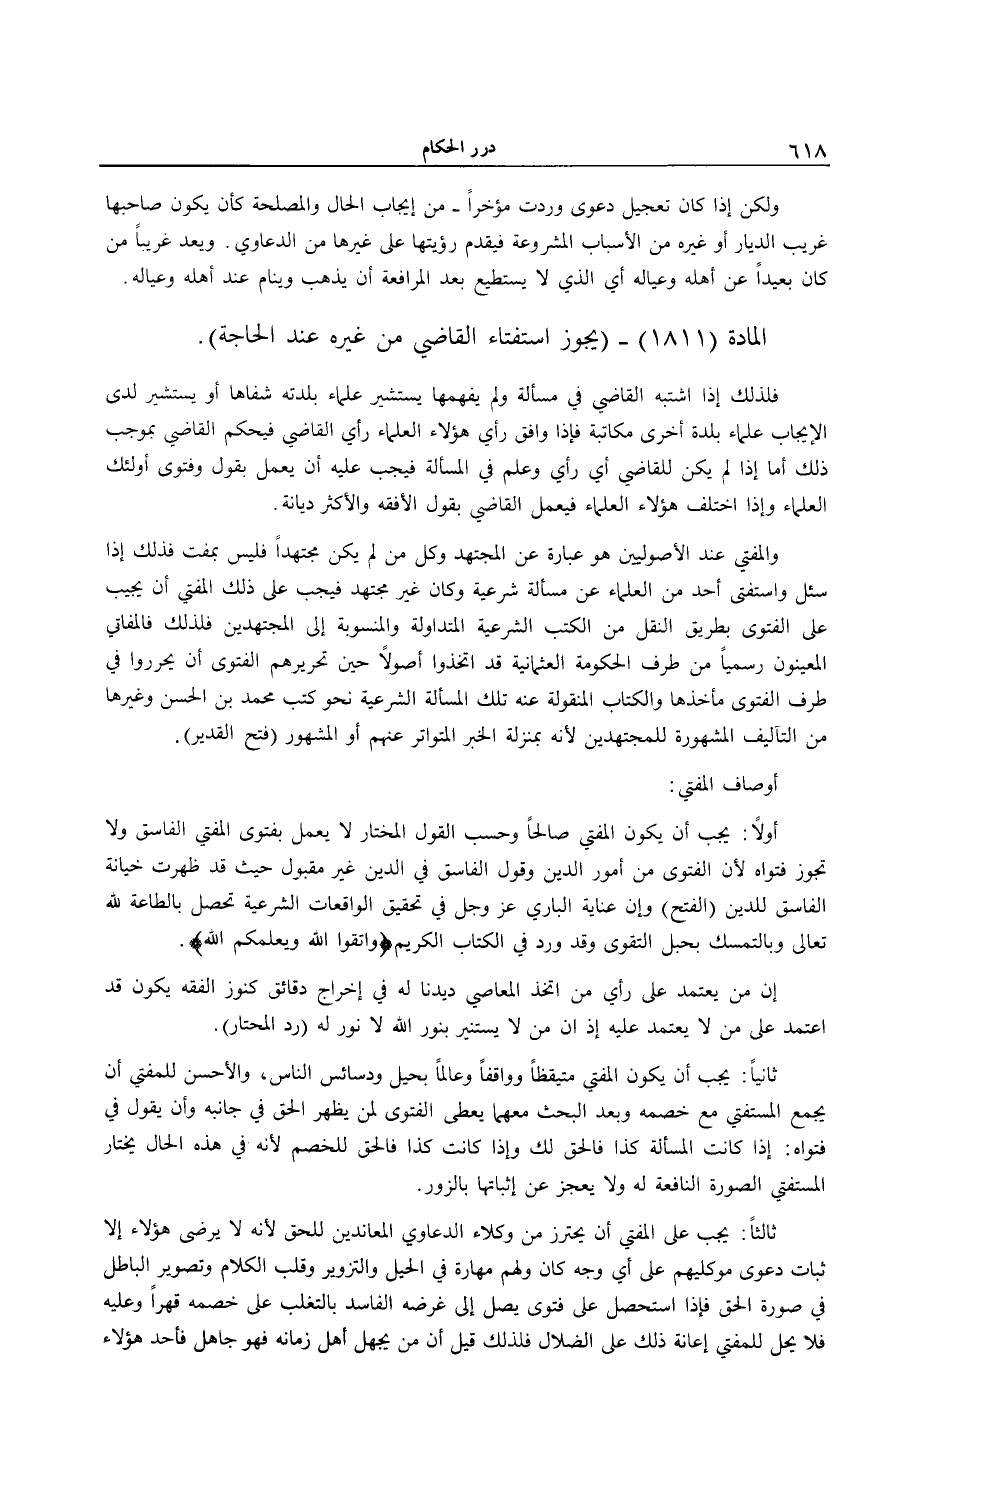 ٦١٨
درر الحكام
ولكن إذا كان تعجيل دعوى وردت مؤخراً ـ من إيجاب الحال والمصلحة كأن يكون صاحبها
غريب الديار أو غيره من الأسباب المشروعة فيقدم رؤيتها على غيرها من الدعاوي. ويعد غريباً من
كان بعيداً عن أهله وعياله أي الذي لا يستطيع بعد المرافعة أن يذهب وينام عند أهله وعياله.
المادة (١٨١١) ـ (يجوز استفتاء القاضي من غيره عند الحاجة).
فلذلك إذا اشتبه القاضي في مسألة ولم يفهمها يستشير علماء بلدته شفاها أو يستشير لدى
الإيجاب علماء بلدة أخرى مكاتبة فإذا وافق رأي هؤلاء العلماء رأي القاضي فيحكم القاضي بموجب
ذلك أما إذا لم يكن للقاضي أي رأي وعلم في المسألة فيجب عليه أن يعمل بقول وفتوى أولئك
العلماء وإذا اختلف هؤلاء العلماء فيعمل القاضي بقول الأفقه والأكثر ديانة.
والمفتي عند الأصوليين هو عبارة عن المجتهد وكل من لم يكن مجتهداً فليس بمفت فذلك إذا
سئل واستفتى أحد من العلماء عن مسألة شرعية وكان غير مجتهد فيجب على ذلك المفتي أن يجيب
على الفتوى بطريق النقل من الكتب الشرعية المتداولة والمنسوبة إلى المجتهدين فلذلك فالمفاتي
المعينون رسمياً من طرف الحكومة العثمانية قد اتخذوا أصولاً حين تحريرهم الفتوى أن يحرروا في
طرف الفتوى مأخذها والكتاب المنقولة عنه تلك المسألة الشرعية نحو كتب محمد بن الحسن وغيرها
من التآليف المشهورة للمجتهدين لأنه بمنزلة الخبر المتواتر عنهم أو المشهور (فتح القدير).
أوصاف المفتي:
أولاً: يجب أن يكون المفتي صالحاً وحسب القول المختار لا يعمل بفتوى المفتي الفاسق ولا
تجوز فتواه لأن الفتوى من أمور الدين وقول الفاسق في الدين غير مقبول حيث قد ظهرت خيانة
الفاسق للدين (الفتح) وإن عناية الباري عز وجل في تحقيق الواقعات الشرعية تحصل بالطاعة لله
تعالى وبالتمسك بحبل التقوى وقد ورد في الكتاب الكريم ﴿واتقوا الله ويعلمكم الله﴾.
إن من يعتمد على رأي من اتخذ المعاصي ديدنا له في إخراج دقائق كنوز الفقه يكون قد
اعتمد على من لا يعتمد عليه إذ ان من لا يستنير بنور الله لا نور له (رد المحتار).
ثانياً: يجب أن يكون المفتي متيقظاً وواقفاً وعالماً بحيل ودسائس الناس، والأحسن للمفتي أن
يجمع المستفتي مع خصمه وبعد البحث معهما يعطى الفتوى لمن يظهر الحق في جانبه وأن يقول في
فتواه: إذا كانت المسألة كذا فالحق لك وإذا كانت كذا فالحق للخصم لأنه في هذه الحال يختار
المستفتي الصورة النافعة له ولا يعجز عن إثباتها بالزور.
ثالثاً: يجب على المفتي أن يحترز من وكلاء الدعاوي المعاندين للحق لأنه لا يرضى هؤلاء إلا
ثبات دعوى موكليهم على أي وجه كان ولهم مهارة في الحيل والتزوير وقلب الكلام وتصوير الباطل
في صورة الحق فإذا استحصل على فتوى يصل إلى غرضه الفاسد بالتغلب على خصمه قهراً وعليه
فلا يحل للمفتي إعانة ذلك على الضلال فلذلك قيل أن من يجهل أهل زمانه فهو جاهل فأحد هؤلاء